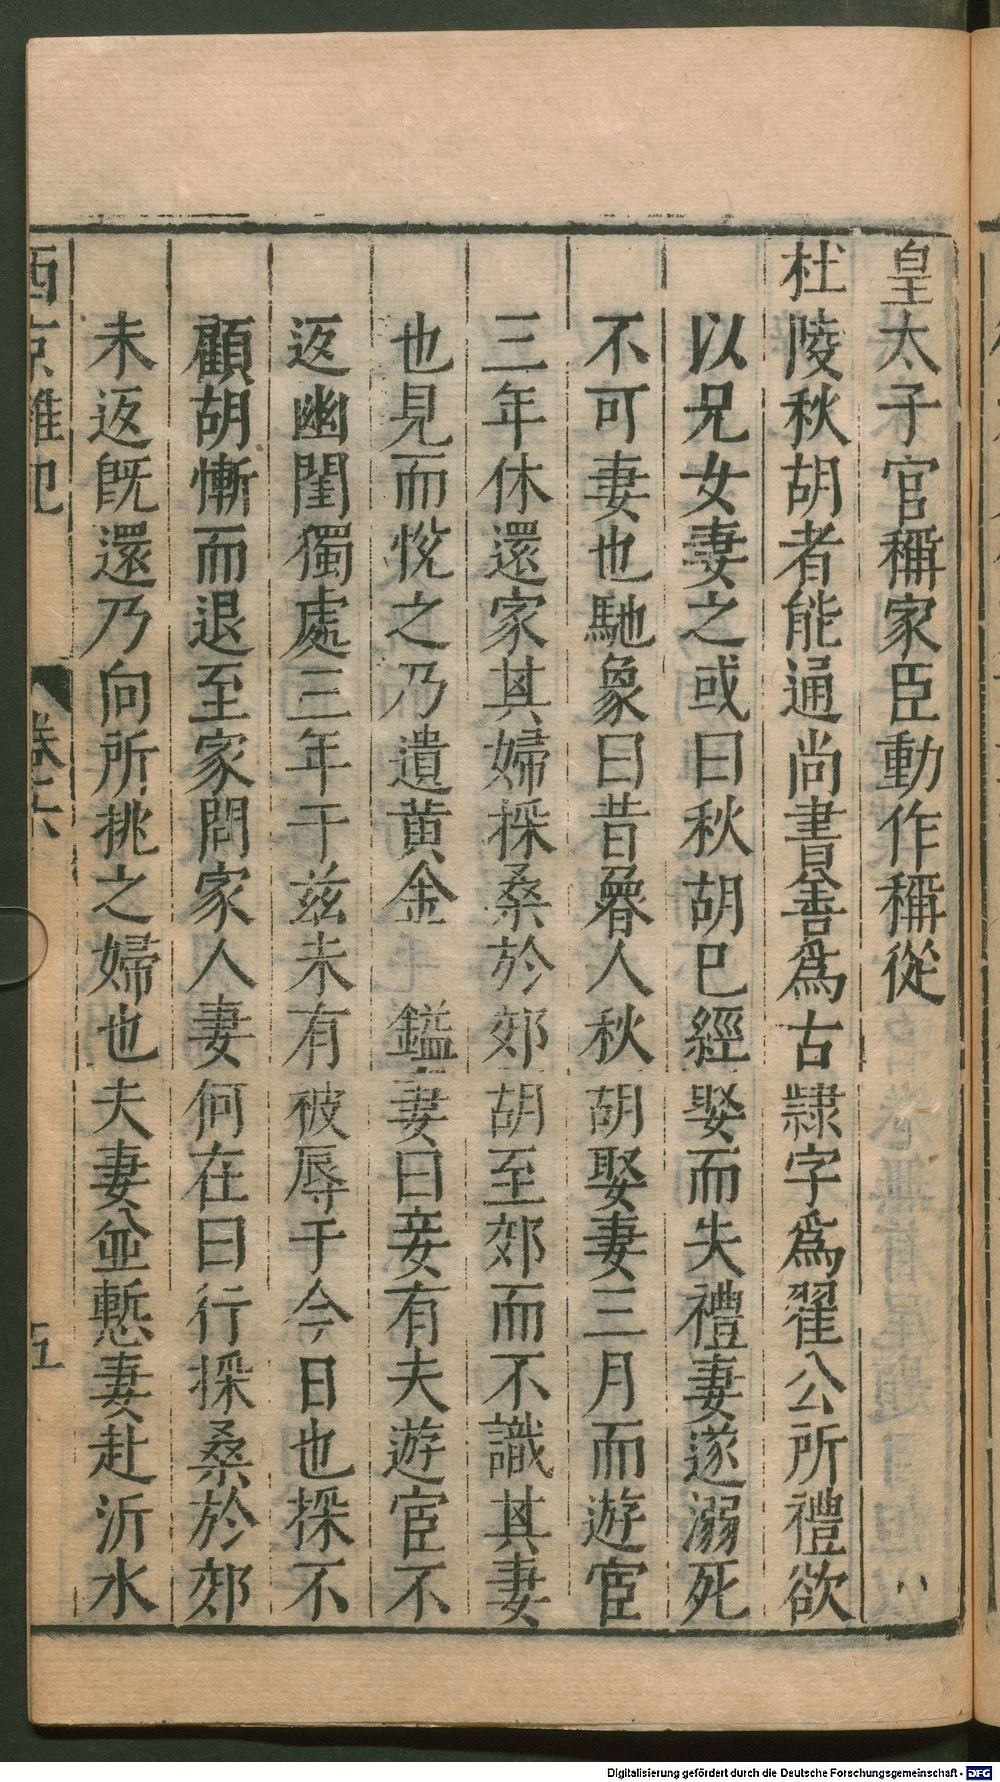 皇太子官稱家臣動作稱從
杜陵秋胡者能通尚書善爲古隸字爲翟公所禮欲
以兄女妻之或曰秋胡巳經娶而失禮妻遂溺死
不可妻也馳象曰昔魯人秋胡娶妻三月而遊宦
三年休還家其婦採桑於郊胡至郊而不識其妻
也見而悅之乃遺黃金 鎰妻曰妾有夫遊宦不
返幽閨獨處三年于兹未有被辱于今日也採不
顧胡慚而退至家問家人妻何在曰行採桑於郊
未返旣還乃向所挑之婦也夫妻並慙妻赴沂水
西京雜記 卷六 五
Digitalisierung gefördert durch die Deutsche Forschungsgemeinschaft - DFG